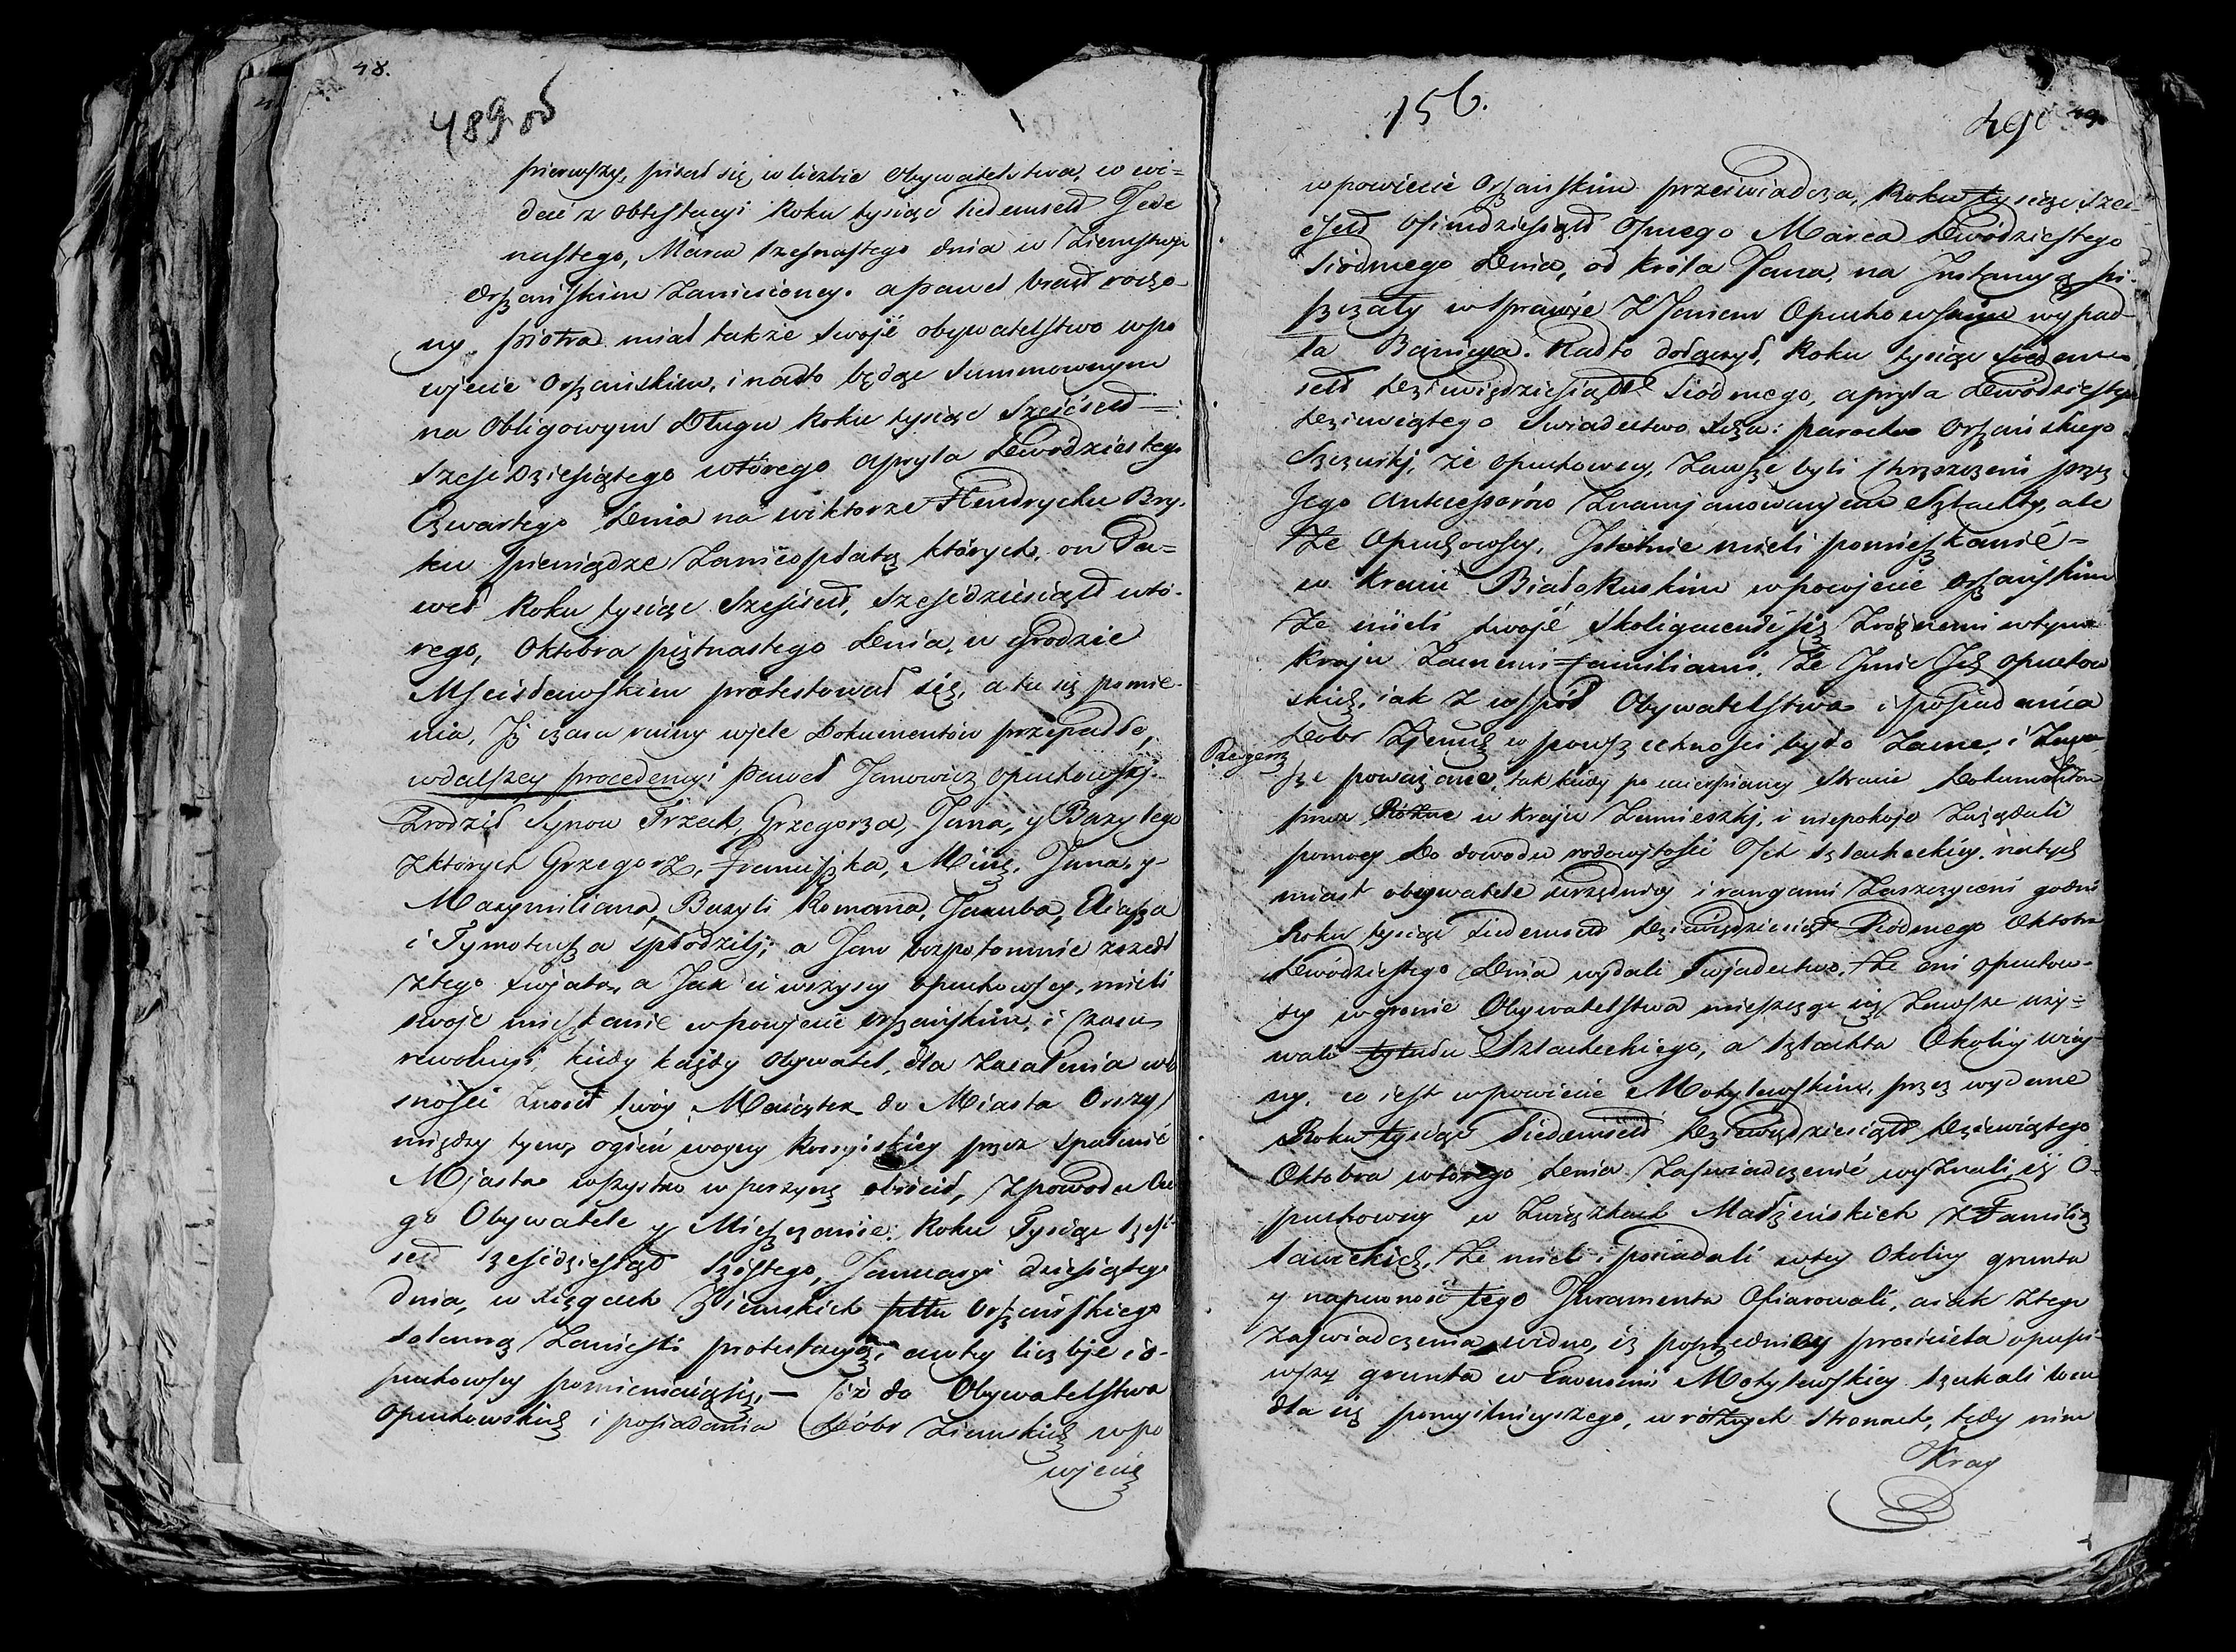 48.
489 об
pierwszy, pisał się w liczbie Obywatelstwa, w wi=
dać z obtestacyi Roku tysiąc siedmset Jede
nastego, Marca szesnastego dnia w Ziemstwje
Orszańskim Zaniesioney. a Paweł brat rodzo
ny Piotra miał także swojé obywatelstwo w po
wjecie Orszańskim, i nadto będąc summownym
na Obligowym Długu Roku tysiąc Sześćset
Sześćdziesiątego wtórego apryla Dwódziestego
Czwartego Dnia na wiktorze Hendrychu Bry.
ku pieniądze Zanieopłatę których, on Pa=
weł Roku tysiąc Szesćset, Szesćdziesiąt wtó.
rego, Oktobra piętnastego Dnia, w Grodzie
Mścisławskim protestował się, a tu się pomie
nia, Iż czasu ruiny wjele Dokumentów przepadło,
w dalszey procedencyi Paweł Janowicz Opuchowskj.
Zrodził Synow Trzech, Grzegorza, Jana, y Bazylego
z których Grzegorz, Franciszka, Mich. Jana, y
Maxymiliana, Bazyli Romana, Jakuba, Eliasza
i Tymoteusza spłodzilj; a Jan bezpotomnie zszedł
z tego swjata, a Jak ci wszyscy Opuchowscy, mieli
swoje mieszkanie w powjecie orszańskim, i Czasu
rewolucyi, kiedy każdy Obywatel, dla Zacalenia wła
sności Znosił swóy Maiątek do Miasta Orszy,
między tym, ogień woyny Rossyiskiey przez spalenié
Mjasta wszystko w perzynę obrócił, Z powodu cze
go Obywatele y Mieszczanie: Roku Tysiąc sześć
set sześćdziesiąt szóstego, Januaryi dziesiątego
dnia, w Xięgach Ziemskich pttu Orszańskiego
solenną Zanieśli protestacyą, a w tey liczbje i O-
puchowscy pomieniaią się, — Iż do Obywatelstwa
Opuchowskich i posiadania Dóbr Ziemskich w po
wjecie
156.
490 49
w powiecie Orszańskim przeswiadcza, Roku tysiąc szes-
ćset osimdziesiąt Osmego Marca Dwódziestego
Siódmego Dnia, od Króla Jana, na Instancyą
w Sprawie Z Janem Opuchowskim wypad-
ła Banicya. Nadto dołączył, Roku tysiąc siedem
set Dziewiędziesiąt Siódmego, apryla Dwódziestego
Dziewiątego Swiadectwo Xdza: Parocha Orszańskiego
że Opuchowscy, Zawsze byli chrzszczeni przez
Jego Antecessorów Znamjanowanjem Szlachty, ale
Że Opuchowscy, Istotnie mieli pomieszkanié=
w Kraiu Białoruskim w powjecie Orszańskim
Że mieli swojé skoligacenié się Z różnemi w tym
kraju Zacnemi familiami, Że Imie Ich Opuchow
skich, iak z wspód Obywatelstwa i posiadania
Dóbr Ziemskich w powszechności było Zacne, i Zaw-
sze poważane, tak kiedy po ucierpianey stracie Dokumentów
przez Różne w kraju Zamieszkj, i niepokoje Zażądali
pomocy do dowodu rodowitości Ich szlacheckiey. natych
miast obywatele urzędnicy i rangami Zaszczyceni godni
Roku tysiąc siedemset Dziewiędziesiąt Siódmego Oktobra
Dwódziestego Dnia wydali Swjadectwo, Że oni Opuchow-
scy w gronie Obywatelstwa mieszcząc się Zawsze uży=
wali tytułu Szlacheckiego, a Szlachta Okolicy
co iest w powiecie Mohylewskim, przez wydane
Roku tysiąc Siedemset Dziewiędziesiąt Dziewiątego
Oktobra wtórego Dnia Zaswiadczenié wyznali iż O-
puchowscy w Związkach Małżeńskich z Familią
Sawickich, Że mieli i posiadali w tey Okolicy grunta
y na pewność tego Juramenta Ofiarowali, a iak z tego
Zaswiadczenia widno, iż poprzednicy prosiciela opuści-
wszy grunta w Ekonomii Mohylewskiey szukali losu
dla się pomyślnieyszego, w różnych stronach, tedy nim
Kray